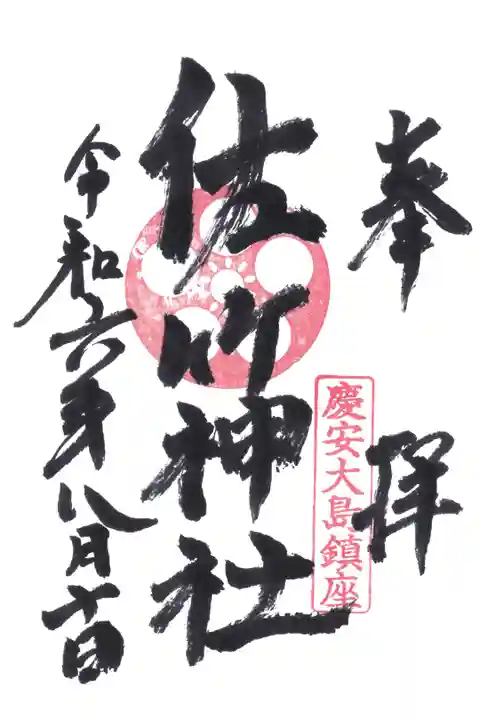 奉拝
慶安大島鎮座
佐竹神社
令和六年八月十日